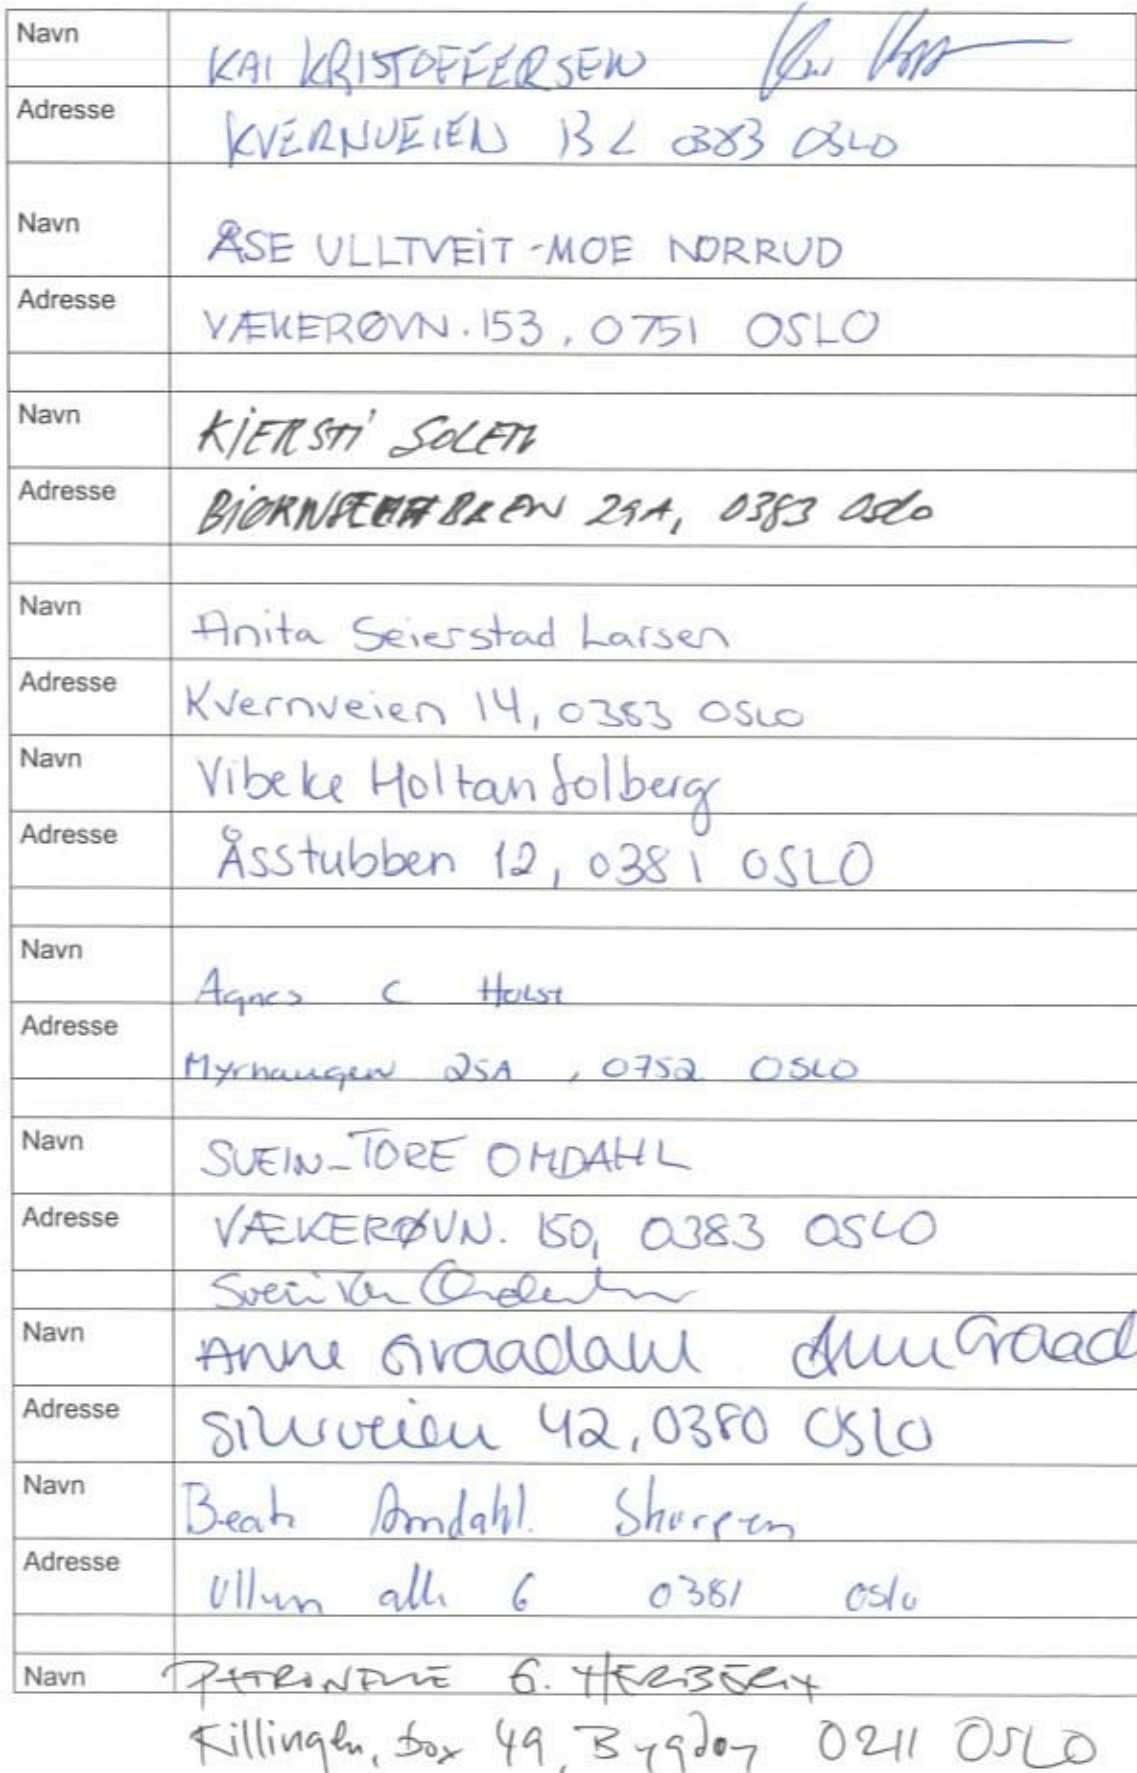 Navn KAI KRISTOFFERSEN
Adresse KVERNVEIEN 13 C 0383 OSLO
Navn ÅSE ULLTVEIT-MOE NORRUD
Adresse VÆKERØVN. 153, 0751 OSLO
Navn KJERSTI SOLEM
Adresse 29A, 0383 Oslo
Navn Anita Seierstad Larsen
Adresse Kvernveien 14, 0383 OSLO
Navn Vibeke Holtan Solberg
Adresse Åsstubben 12, 0381 OSLO
Navn Agnes C Holst
Adresse Myrhaugen 25A, 0752 OSLO
Navn SVEIN-TORE OMDAHL
Adresse VÆKERØVN. 150, 0383 OSLO
Navn Anne Graadahl
Adresse Silurveien 42, 0380 OSLO
Navn Amdahl
Adresse 6 0381 oslo
Navn G.
Killingen, box 49, Bygdøy 0211 OSLO